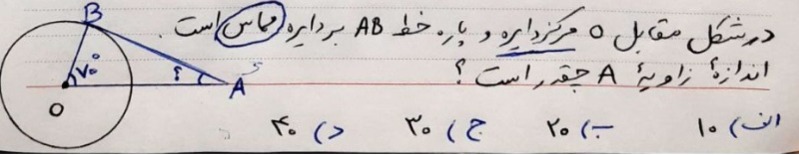 در شکل مقابل O مرکز دایره و پاره خط AB بر دایره مماس است.
اندازهٔ زاویهٔ A چقدر است؟
الف) ۱۰ ب) ۲۰ ج) ۳۰ د) ۴۰
B
۷۰°
؟
A
O